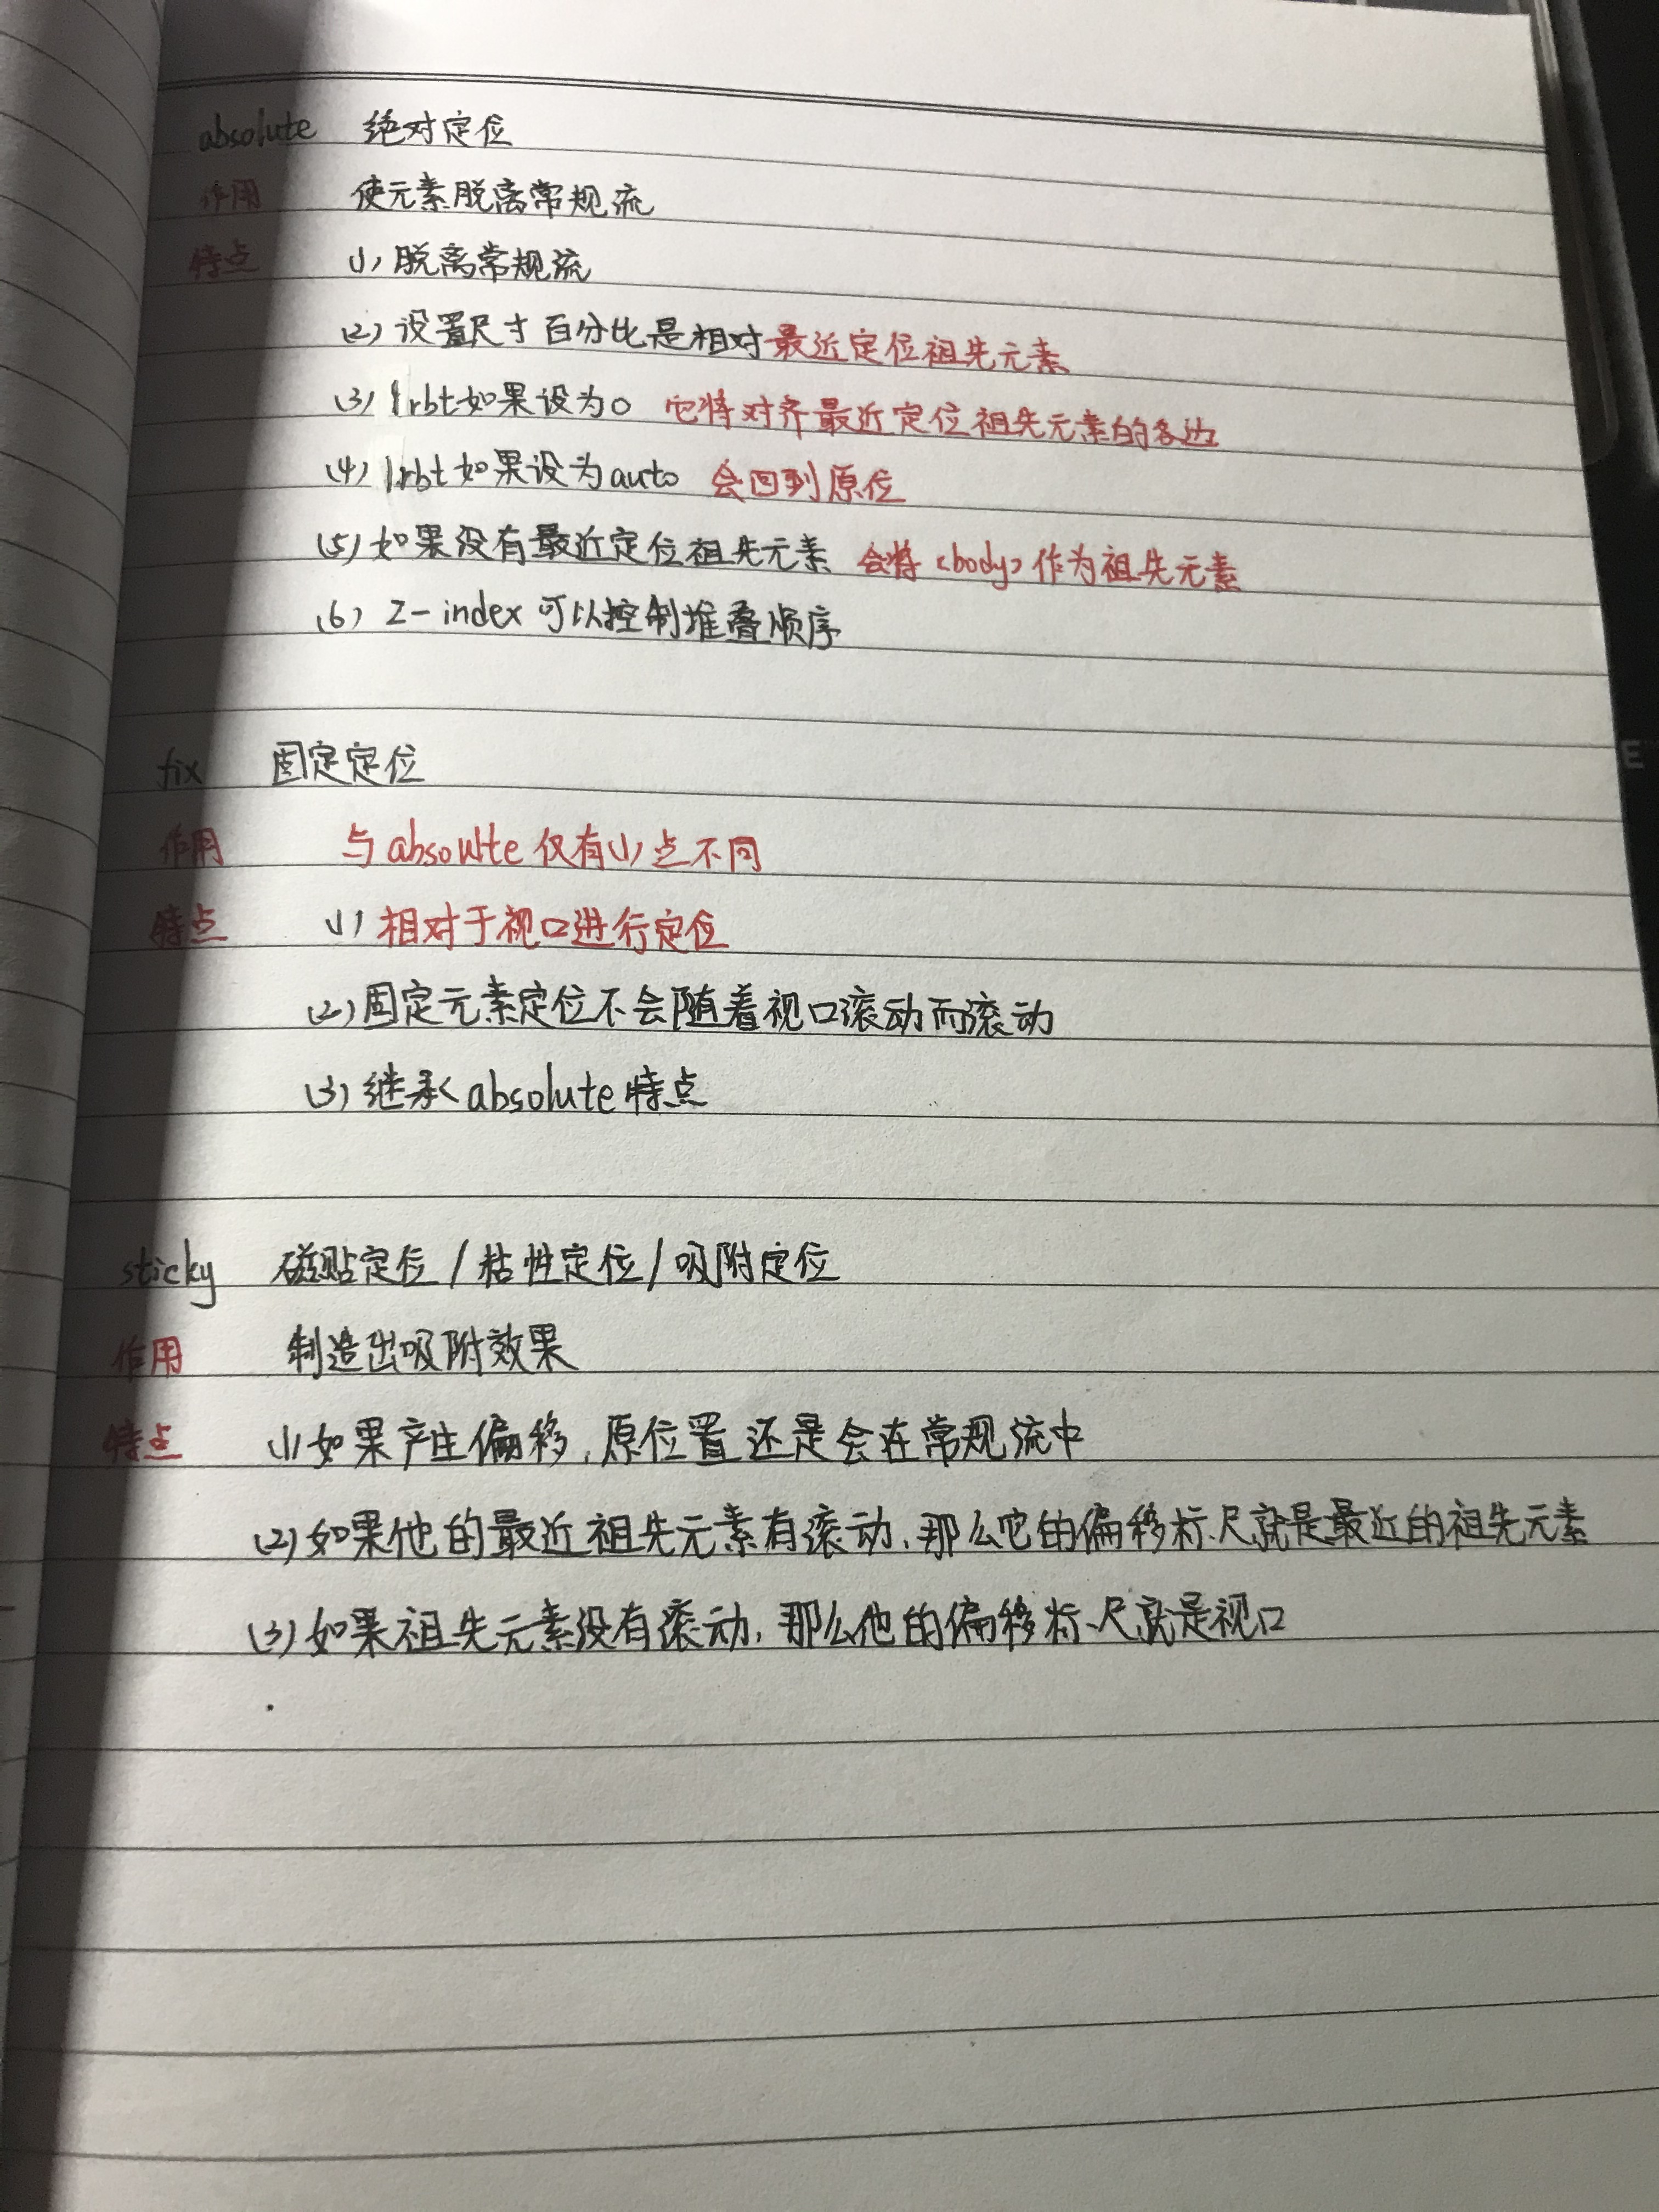 absolute 绝对定位
作用 使元素脱离常规流
特点 (1) 脱离常规流
(2) 设置尺寸百分比是相对最近定位祖先元素
(3) lrbt如果设为0 它将对齐最近定位祖先元素的各边
(4) lrbt如果设为auto 会回到原位
(5) 如果没有最近定位祖先元素 会将<body>作为祖先元素
(6) z-index可以控制堆叠顺序
fix 固定定位
作用 与absoulte仅有(1)点不同
特点 (1) 相对于视口进行定位
(2) 固定元素定位不会随着视口滚动而滚动
(3) 继承absolute特点
sticky 磁贴定位/粘性定位/吸附定位
作用 制造出吸附效果
特点 (1) 如果产生偏移,原位置还是会在常规流中
(2) 如果他的最近祖先元素有滚动,那么它的偏移标尺就是最近的祖先元素
(3) 如果祖先元素没有滚动,那么他的偏移标尺就是视口
E